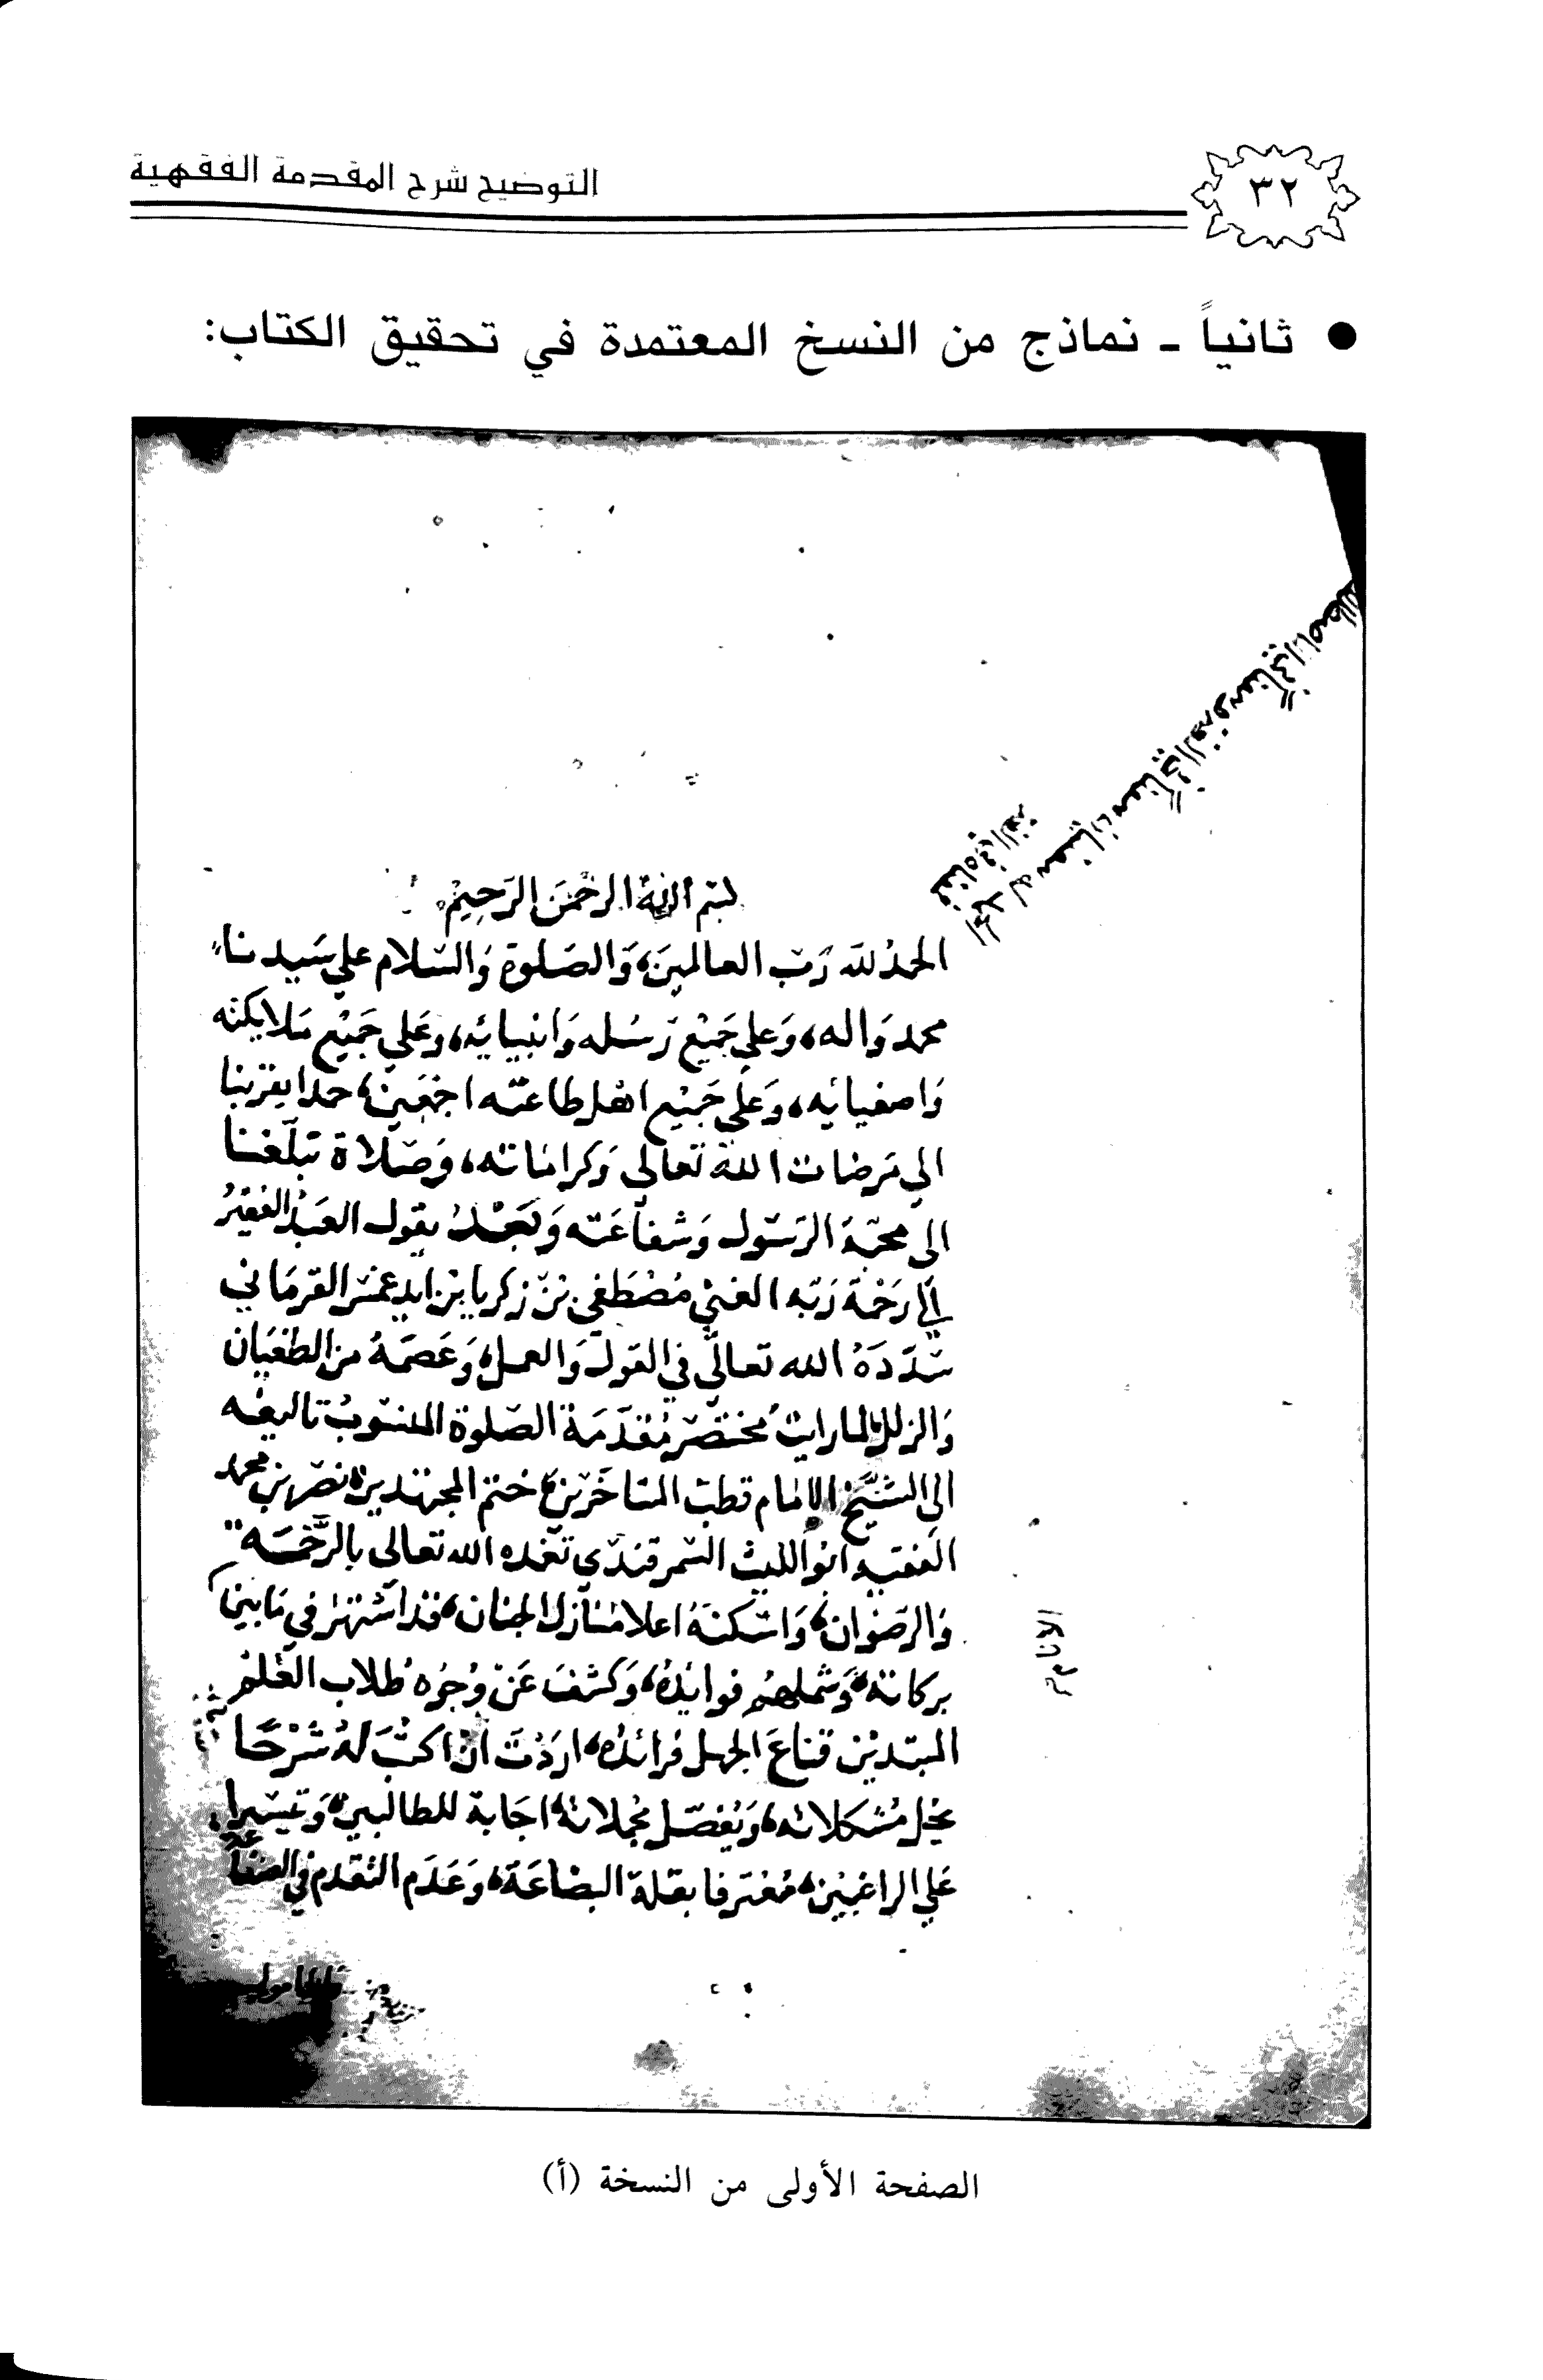 التوضيح شرح المقدمة الفقهية
٣٢
● ثانياً - نماذج من النسخ المعتمدة في تحقيق الكتاب:
بسم الله الرحمن الرحيم
الحمد لله رب العالمين، والصلوة والسلام علي سيدنا
محمد واله، وعلي جميع رسله وانبيائه، وعلي جميع ملايكته
واصفيائه، وعلي جميع اهل طاعته اجمعين، حمدا يقربنا
الي مرضات الله تعالى وكراماته، وصلاة تبلغنا
الى محبة الرسول وشفاعته وبعد يقول العبد الفقير
الى رحمة ربه الغني مصطفى بن زكريا بن ايدغمش القرماني
سدده الله تعالى في القول والعمل، وعصمه من الطغيان
والزلل، لما رايت مختصر مقدمة الصلوة المنسوب تاليفه
الى الشيخ الامام قطب المتاخرين، ختم المجتهدين، نصر بن محمد
الفقيه ابو الليث السمرقندى تغمده الله تعالى بالرحمة
والرضوان، واسكنه اعلا منازل الجنان، قد اشتهر في ما بين
الانام
بركاته، وشملهم فوائده، وكشف عن وجوه طلاب العلم
المبتدئين قناع الجهل فرائده، اردت ان اكتب له شرحا
يحل مشكلاته، ويفصل مجملاته، اجابة للطالبين، وتيسيرا
علي الراغبين، معترفا بقلة البضاعة، وعدم التقدم في الصناعة
الصفحة الأولى من النسخة (أ)